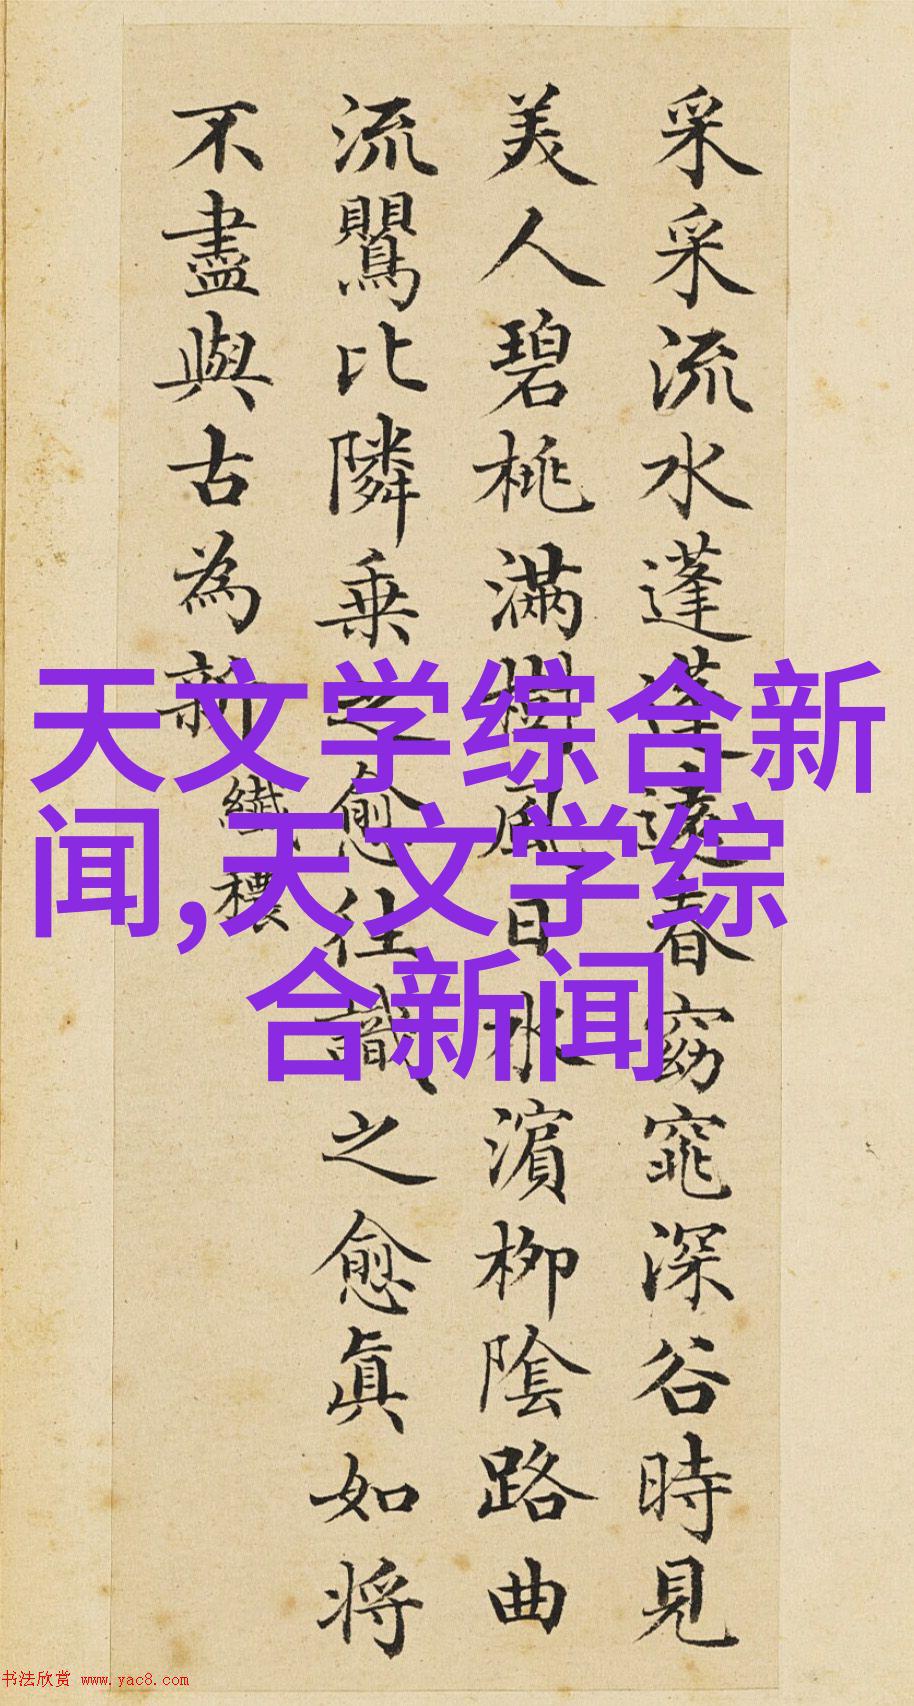 采采流水蓬蓬遠春窈窕深谷時見
美人碧桃滿樹風日水濱柳陰路曲
流鶯比隣乗之愈往識之愈眞如将
不盡與古為新
纎穠
天文学综合新
闻,天文学综
合新闻
书法欣赏 www.yac8.com